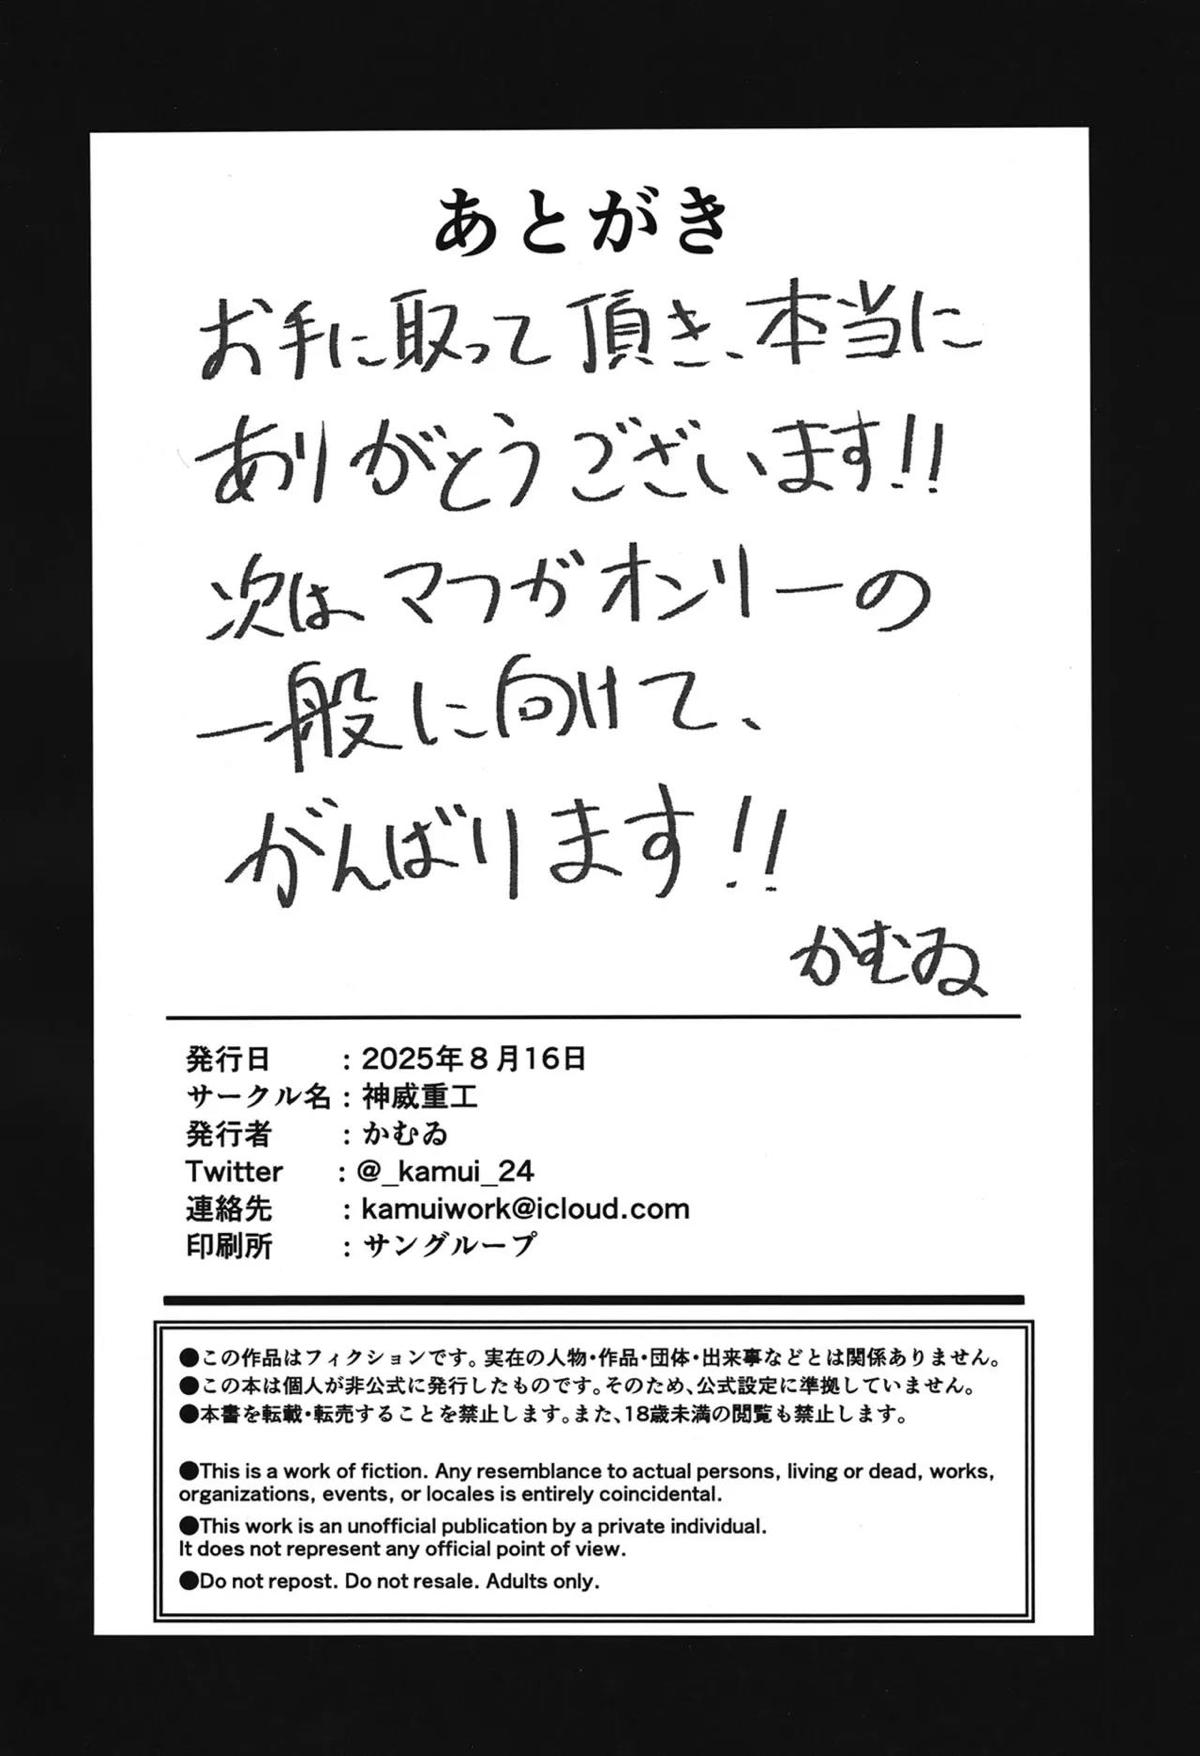 あとがき
お手に取って頂き、本当に
ありがとうございます!!
次は、マフガオンリーの
一般に向けて、
がんばります!!
かむゐ
発行日 : 2025年8月16日
サークル名 : 神威重工
発行者 : かむゐ
Twitter : @_kamui_24
連絡先 : kamuiwork@icloud.com
印刷所 : サングループ
●この作品はフィクションです。実在の人物・作品・団体・出来事などとは関係ありません。
●この本は個人が非公式に発行したものです。そのため、公式設定に準拠していません。
●本書を転載・転売することを禁止します。また、18歳未満の閲覧も禁止します。
●This is a work of fiction. Any resemblance to actual persons, living or dead, works,
organizations, events, or locales is entirely coincidental.
●This work is an unofficial publication by a private individual.
It does not represent any official point of view.
●Do not repost. Do not resale. Adults only.